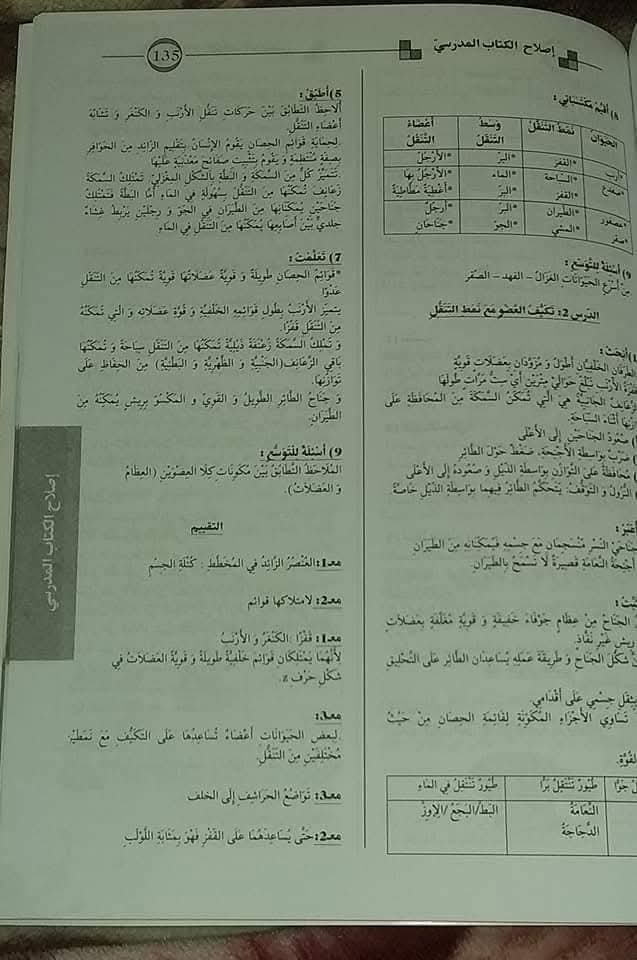 إصلاح الكتاب المدرسيّ
135
8) أقيّم مكتسباتي :
الحيوان نمط التنقّل وسط التنقّل أعضاء التنقّل
*أرنب *القفز *البرّ *الأرجلُ
*ضفدع *السّباحة *الماء *الأرجلُ بها
*القفز *البرّ *أغطية مطّاطيّة
*عصفور *الطّيران *البرّ *أرجلٌ
*صقر *المشي *الجوّ *جناحان
9) أسئلة للتّوسّع :
من أسرع الحيوانات الغزال - الفهد - الصّقر
الدرس 2: تكيّف العضو مع نمط التنقّل
1) أبحث :
الخلفيّان أطول و مزوّدان بعضلات قويّة
قفزة الأرنب تبلغ حوالي مترين أي ستّ مرّات طولها
الجانبيّة هي الّتي تمكّن السّمكة من المحافظة على
أثناء السّباحة.
صعود الجناحين إلى الأعلى
ضرب بواسطة الأجنحة. ضغط حول الطّائر
محافظة على التّوازن بواسطة الذّيل و صعوده إلى الأعلى
النّزول و التّوقّف: يتحكّم الطّائر فيهما بواسطة الذّيل خاصّة.
جناحي النّسر منسجمان مع جسمه فيمكّنانه من الطّيران
أجنحة النّعامة قصيرة لا تسمح بالطّيران.
الجناح من عظام جوفاء خفيفة و قويّة مغلّفة بعضلات
ريش غير نفّاذ.
شكل الجناح و طريقة عمله يساعدان الطّائر على التّحليق
جسمي على أقدامي.
تساوي الأجزاء المكوّنة لقائمة الحصان من حيث
القوّة.
جوّا طيور تتنقّل برّا طيور تتنقل في الماء
النّعامة البطّ/البجع /الإوزّ
الدّجاجة
5) أطبّق :
ألاحظ التّطابق بين حركات تنقّل الأرنب و الكنغر و تشابه
أعضاء التّنقّل.
.لحماية قوائم الحصان يقوم الإنسان بتقليم الزّائد من الحوافر
بصفة منتظمة و يقوم بتثبيت صفائح معدنيّة عليها
.تتميّز كلّ من السّمكة و البطّة بالشّكل المغزليّ. تمتلك السّمكة
زعانف تمكّنها من التنقّل بسهولة في الماء أمّا البطّة فتمتلك
جناحين يمكّنانها من الطّيران في الجوّ و رجلين يربط غشاء
جلديّ بين أصابعها يمكّنها من التنقّل في الماء
7) تعلّمت :
*قوائم الحصان طويلة و قويّة عضلاتها قويّة تمكّنها من التنقّل
عدوًا
يتميّز الأرنب بطول قوائمه الخلفيّة و قوّة عضلاته و الّتي تمكّنه
من التنقّل قفزًا.
و تملك السّمكة زعنفة ذيليّة تمكّنها من التنقّل سباحة و تمكّنها
باقي الزّعانف(الجنبيّة و الظّهريّة و البطنيّة) من الحفاظ على
توازنها.
و جناح الطّائر الطّويل و القويّ و المكسوّ بريش يمكّنه من
الطّيران.
9) أسئلة للتّوسّع :
الملاحظ التّطابق بين مكوّنات كلا العضوين (العظام
و العضلات).
التقييم
معـ1:العنصر الزّائد في المخطّط : كتلة الجسم
معـ2: لامتلاكها قوائم
معـ1: قفزًا :الكنغر و الأرنب
لأنّهما يمتلكان قوائم خلفيّة طويلة و قويّة العضلات في
شكل حرف z.
معـ3:
.لبعض الحيوانات أعضاء تساعدها على التكيّف مع نمطين
مختلفين من التنقّل.
معـ3: تواضع الحراشف إلى الخلف
معـ2: حتّى يساعدهما على القفز فهو بمثابة اللّولب
إصلاح الكتاب المدرسي